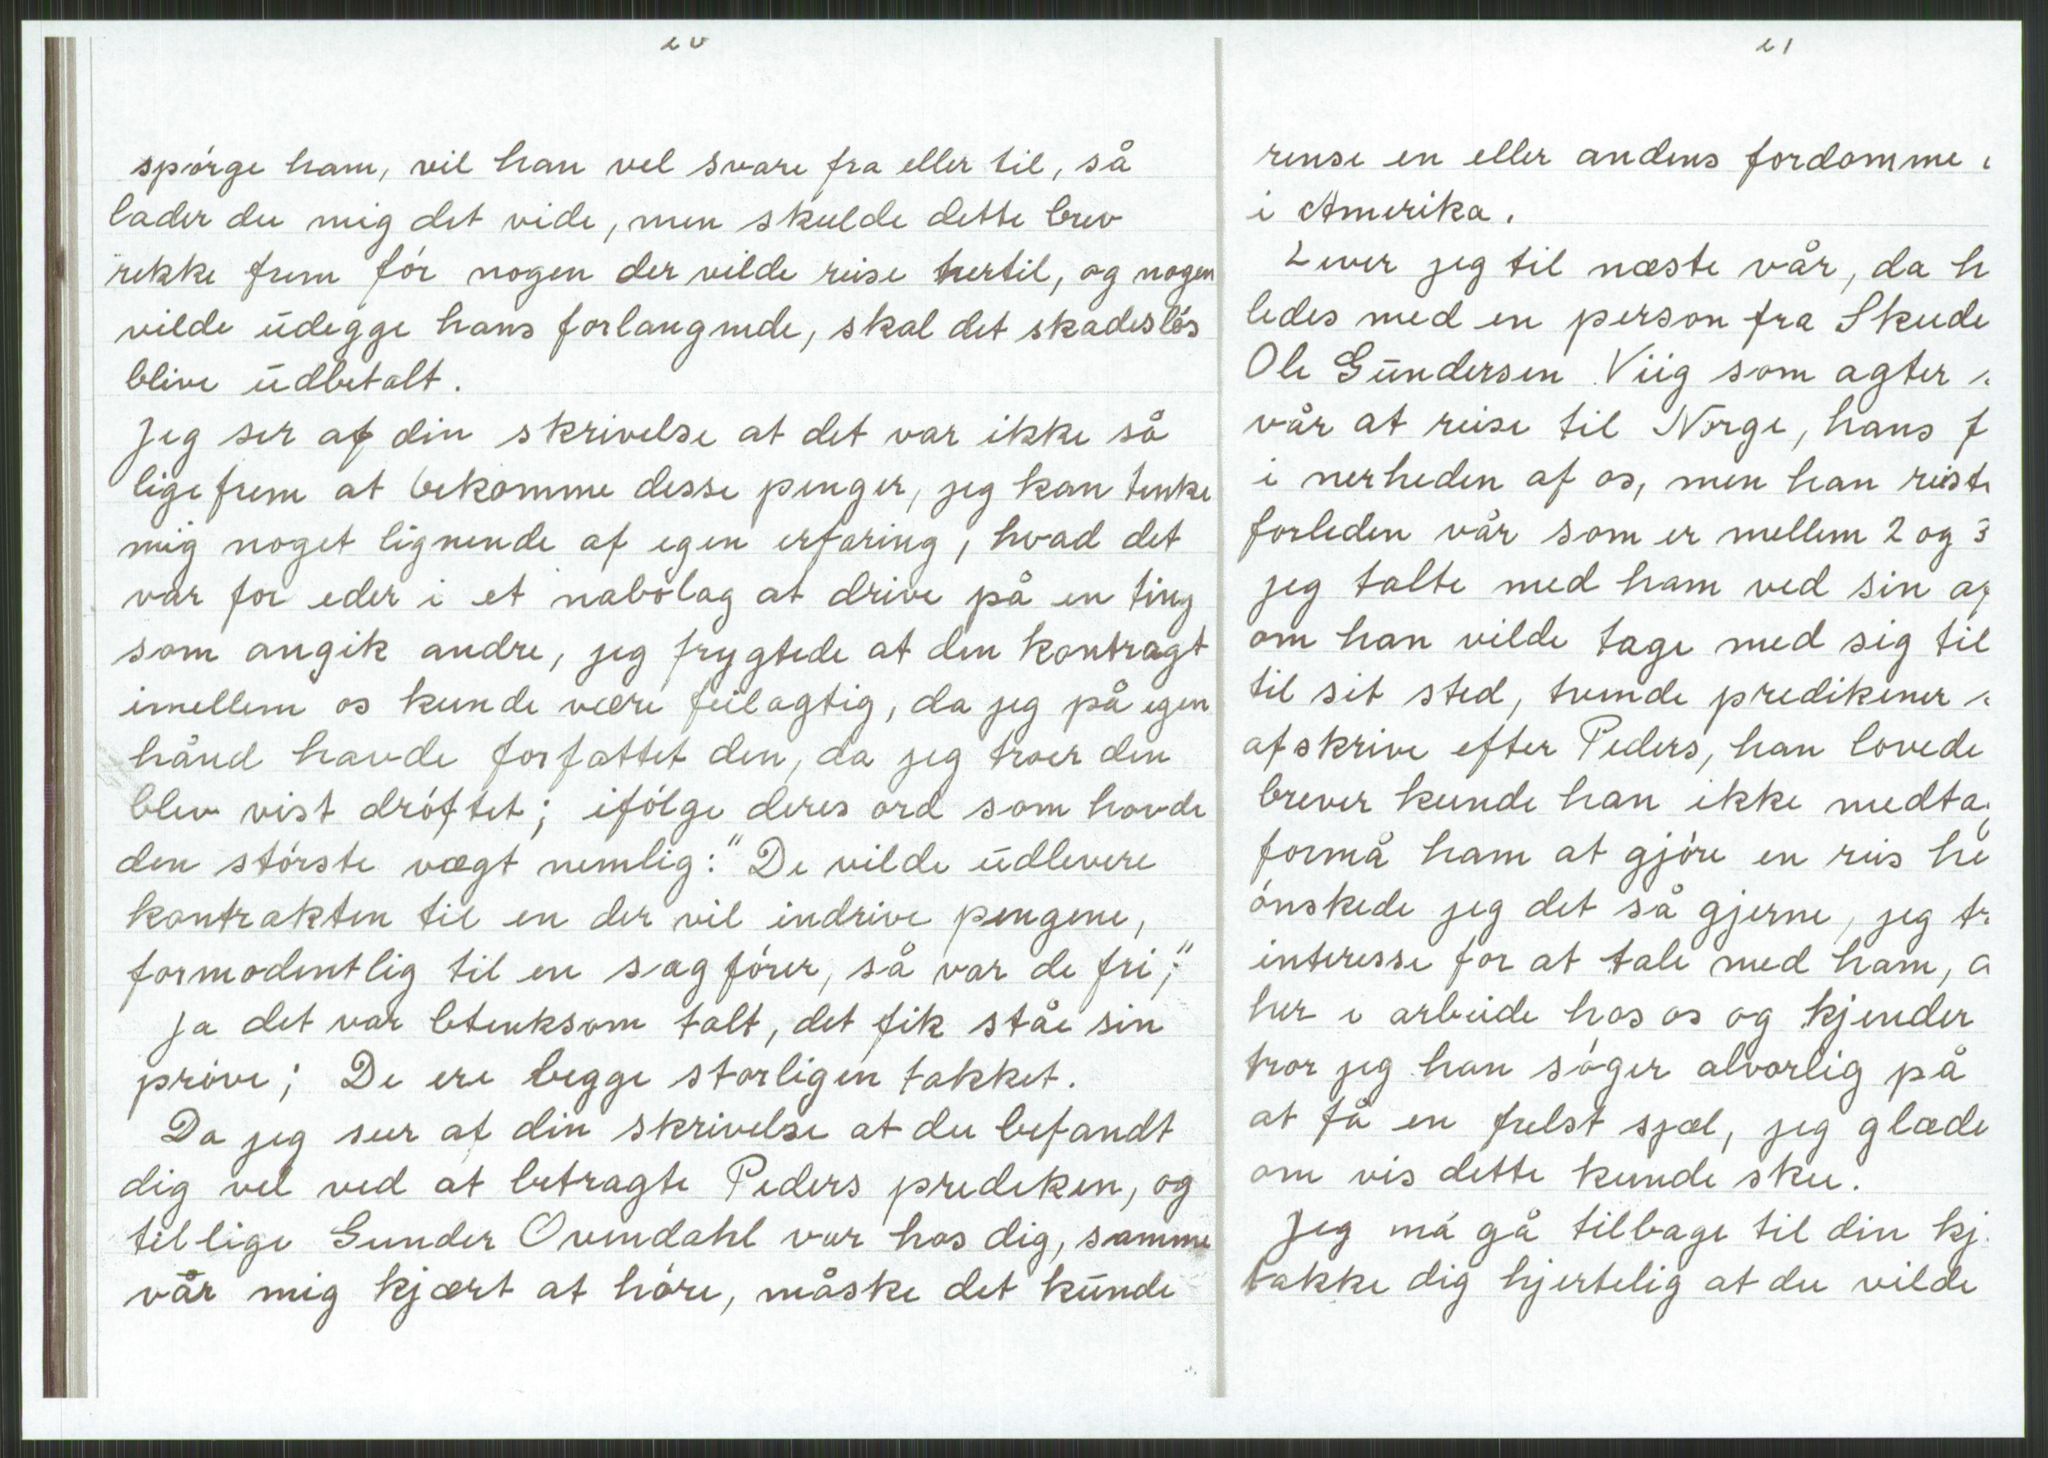 spørge ham, vil han vel svare fra eller til, så
lader du mig det vide, men skulde dette brev
rekke frem før nogen der vilde reise hertil, og nogen
vilde udegge hans forlangende, skal det skadesløs
blive udbetalt.
Jeg ser af din skrivelse at det var ikke så
ligefrem at bekomme desse penger, jeg kan tenke
mig noget lignende af egen erfaring, hvad det
var for eder i et nabolag at drive på en ting
som angik andre, jeg frygtede at den kontragt
imellem os kunde være feilagtig, da jeg på egen
hånd havde forfattet den, da jeg troer den
blev vist drøftet; ifølge deres ord som havde
den største vægt nemlig: "De vilde udlevere
kontrakten til en der vil indrive pengene,
formodentlig til en sagfører, så var de fri;"
ja det var btenksom talt, det fik ståe sin
prøve; De ere begge storligen takket.
Da jeg seer af din skrivelse at du befandt
dig vel ved at betragte Peders prediken, og
tillige Gunder Ovendahl var hos dig, samme
vår mig kjært at høre, måske det kunde
21
rense en eller andens fordomme
i Amerika.
Lever jeg til næste vår, da h
ledes med en person fra Skude
Ole Gundersen Viig som agter
vår at reise til Norge, hans f
i nerheden af os, men han reist
forleden vår som er mellem 2 og 3
jeg talte med ham ved sin a
om han vilde tage med sig til
til sit sted, tvende predikener
afskrive efter Peders, han lovede
brever kunde han ikke medta
formå ham at gjøre en reis he
ønskede jeg det så gjerne, jeg tr
interesse for at tale med ham,
her i arbeide hos os og kjender
tror jeg han søger alvorlig på
at få en frelst sjæl, jeg glæde
om vis dette kunde skee.
Jeg må gå tilbage til din kj
takke dig hjertelig at du vilde